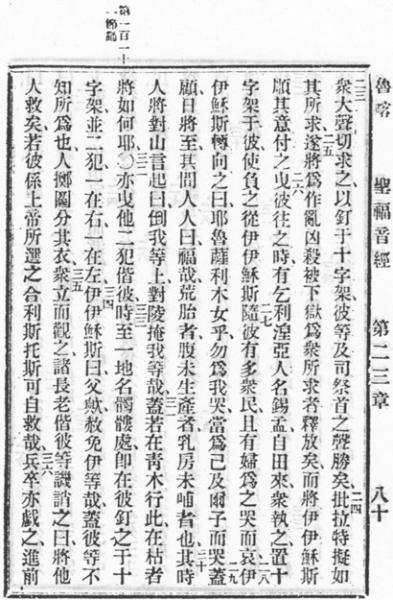 魯喀 聖福音經 第二三章 八十
二三衆大聲切求之以釘于十字架彼等及司祭首之聲勝矣二四批拉特擬如
其所求二五遂將爲作亂凶殺被下獄爲衆所求者釋放矣而將伊伊穌斯
順其意付之二六曳彼往之時有乞利湼亞人名錫孟自田來衆執之置十
字架于彼使負之從伊伊穌斯二七隨彼有多衆民且有婦爲之哭而哀二八伊
伊穌斯轉向之曰耶魯薩利木女乎勿爲我哭當爲己及爾子而哭二九蓋
顧日將至其間人人曰福哉荒胎者腹未生產者乳房未哺者也三十其時
人將對山言起曰倒我等上對陵掩我等哉三一蓋若在青木行此在枯者
將如何耶〇三二亦曳他二犯偕彼三三時至一地名髑髏處卽在彼釘之于十
字架並二犯一在右一在左三四伊伊穌斯曰父歟赦免伊等哉蓋彼等不
知所爲也人擲鬮分其衣三五衆立而觀之諸長老偕彼等譏誚之曰將他
人救矣若彼係上帝所選之合利斯托斯可自救哉三六兵卒亦戲之進前
第一百一十
一節